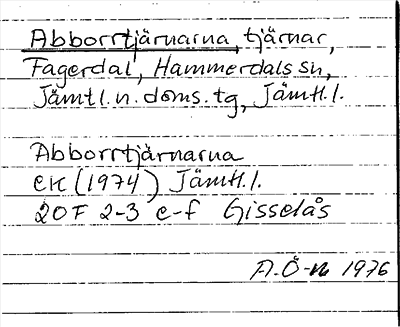 Abborrtjärnarna, tjärnar,
Fagerdal, Hammerdals sn,
Jämtl. n. doms. tg, Jämtl. l.
Abborrtjärnarna
EK (1974) Jämtl. l.
20F 2-3 e-f Gisselås
A.Ö-n 1976